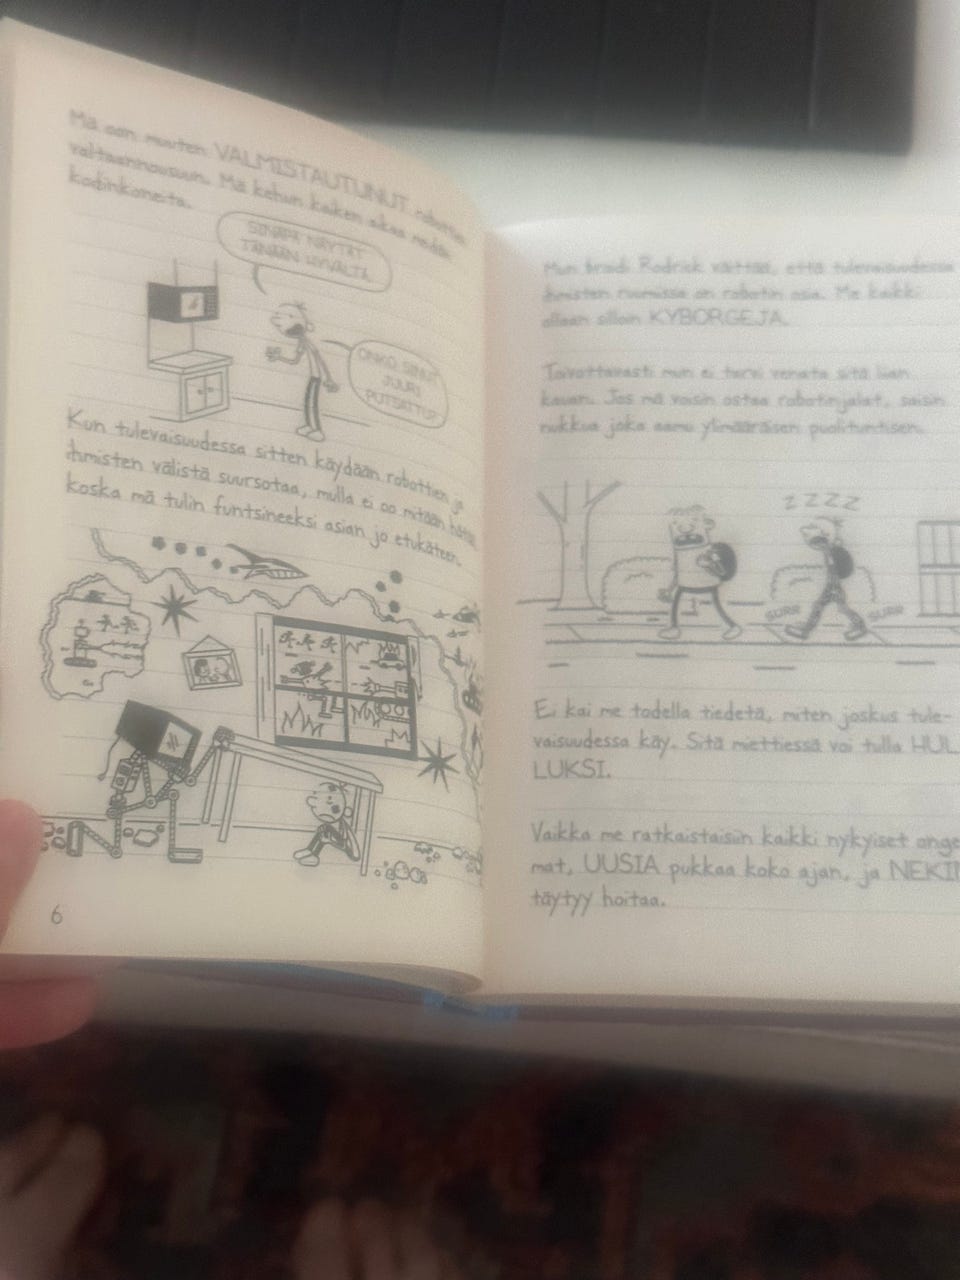 Mä oon muuten VALMISTAUTUNUT robottien
valtaannousuun. Mä kehun kaiken aikaa meidän
kodinkoneita.
SINÄPÄ NÄYTÄT
TÄNÄÄN HYVÄLTÄ.
ONKO SINUT
JUURI
PUTSATTU?
Kun tulevaisuudessa sitten käydään robottien ja
ihmisten välistä suursotaa, mulla ei oo mitään hätää
koska mä tulin funtsineeksi asian jo etukäteen.
6
Mun broidi Rodrick väittää, että tulevaisuudessa
ihmisten ruumiissa on robotin osia. Me kaikki
ollaan silloin KYBORGEJA.
Toivottavasti mun ei tarvi venata sitä liian
kauan. Jos mä voisin ostaa robotinjalat, saisin
nukkua joka aamu ylimääräisen puolituntisen.
ZZZZ
SURR
SURR
Ei kai me todella tiedetä, miten joskus tule-
vaisuudessa käy. Sitä miettiessä voi tulla HUL
LUKSI.
Vaikka me ratkaistaisiin kaikki nykyiset onge
mat, UUSIA pukkaa koko ajan, ja NEKIN
täytyy hoitaa.